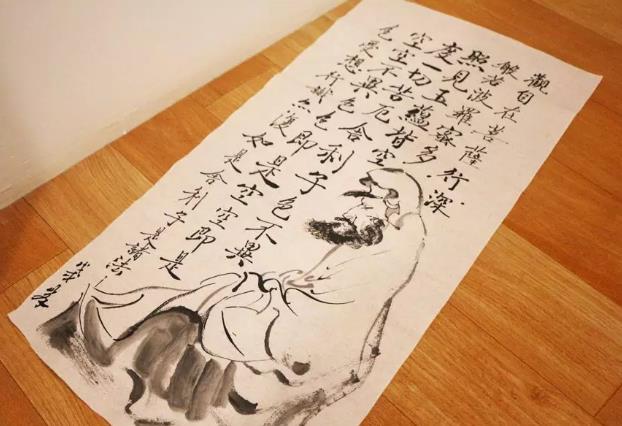 觀自在菩薩行深
般若波羅蜜多
照見五蘊皆空
度一切苦厄舍利子色不異
空空不異色色即是空空即是
色受想行識亦復如是舍利子是諸法